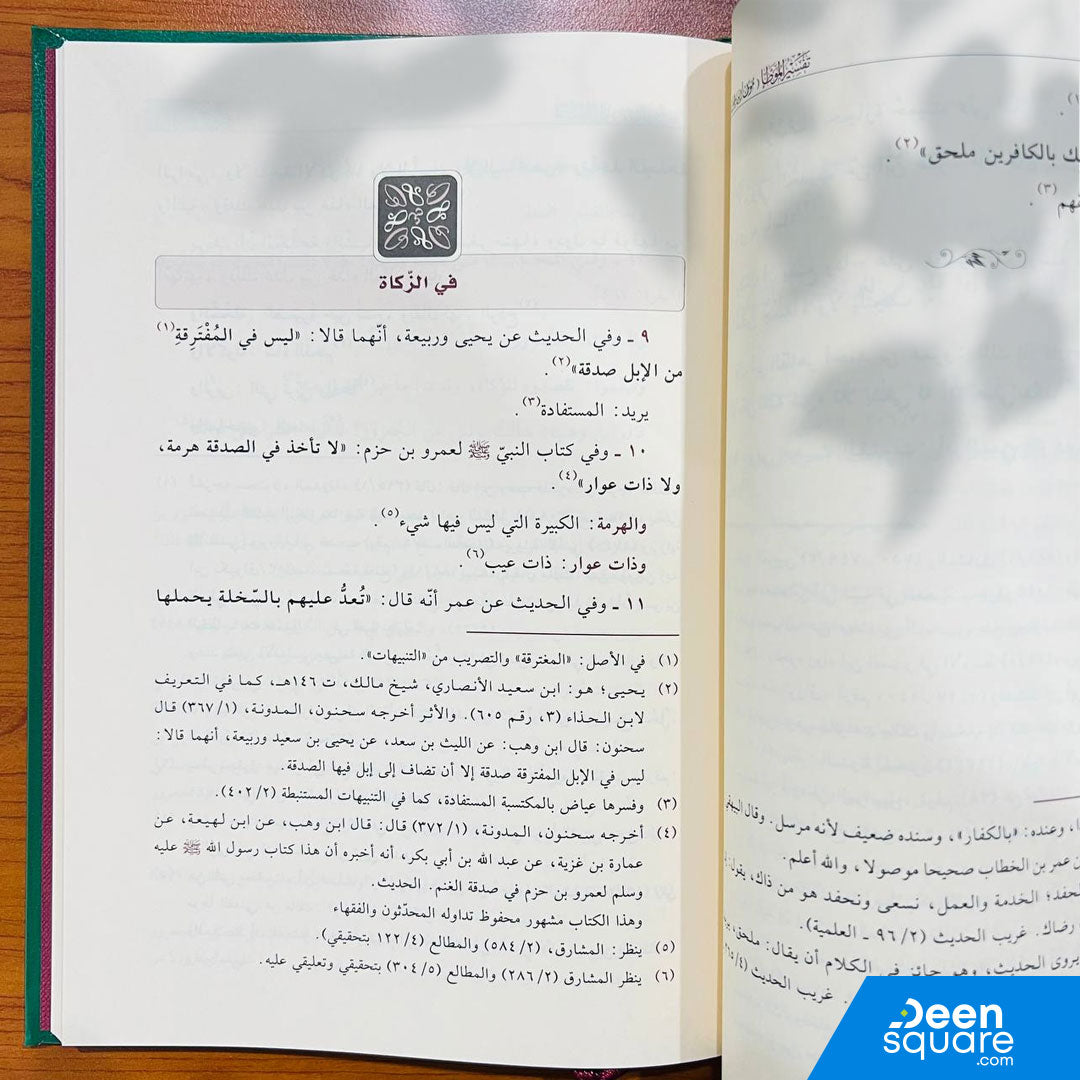 في الزّكاة
٩ ـ وفي الحديث عن يحيى وربيعة، أنّهما قالا: «ليس في المُفْتَرِقةِ(١)
من الإبل صدقة»(٢).
يريد: المستفادة(٣).
١٠ ـ وفي كتاب النبيّ ﷺ لعمرو بن حزم: «لا تأخذ في الصدقة هرمة،
ولا ذات عوار»(٤).
والهرمة: الكبيرة التي ليس فيها شيء(٥).
وذات عوار: ذات عيب(٦).
١١ ـ وفي الحديث عن عمر أنّه قال: «تُعدُّ عليهم بالسّخلة يحملها
(١) في الأصل: «المغترقة» والتصريب من «التنبيهات».
(٢) يحيى؛ هو: ابن سعيد الأنصاري، شيخ مالك، ت ١٤٦هـ، كما في التعريف
لابن الحذاء (٣، رقم ٦٠٥). والأثر أخرجه سحنون، المدونة، (٣٦٧/١) قال
سحنون: قال ابن وهب: عن الليث بن سعد، عن يحيى بن سعيد وربيعة، أنهما قالا:
ليس في الإبل المفترقة صدقة إلا أن تضاف إلى إبل فيها الصدقة.
(٣) وفسرها عياض بالمكتسبة المستفادة، كما في التنبيهات المستنبطة (٤٠٢/٢).
(٤) أخرجه سحنون، المدونة، (٣٧٢/١) قال: قال ابن وهب، عن ابن لهيعة، عن
عمارة بن غزية، عن عبد الله بن أبي بكر، أنه أخبره أن هذا كتاب رسول الله ﷺ عليه
وسلم لعمرو بن حزم في صدقة الغنم. الحديث.
وهذا الكتاب مشهور محفوظ تداوله المحدّثون والفقهاء
(٥) ينظر: المشارق، (٥٨٤/٢) والمطالع (١٢٢/٤ بتحقيقي).
(٦) ينظر المشارق (٢٨٦/٢) والمطالع (٣٠٤/٥) بتحقيقي وتعليقي عليه.
تفسير الموطأ
بالكافرين ملحق»(٢).
(٣).
وعنده: «بالكفار»، وسنده ضعيف لأنه مرسل. وقال البيهقي
عمر بن الخطاب صحيحا موصولا، والله أعلم.
الخدمة والعمل، نسعى ونحفد هو من ذاك، يقول:
رضاك. غريب الحديث (٢/ ٩٦ ـ العلمية).
يروى الحديث، وهو جائز في الكلام أن يقال: ملحق،
غريب الحديث
Deen
square
.com